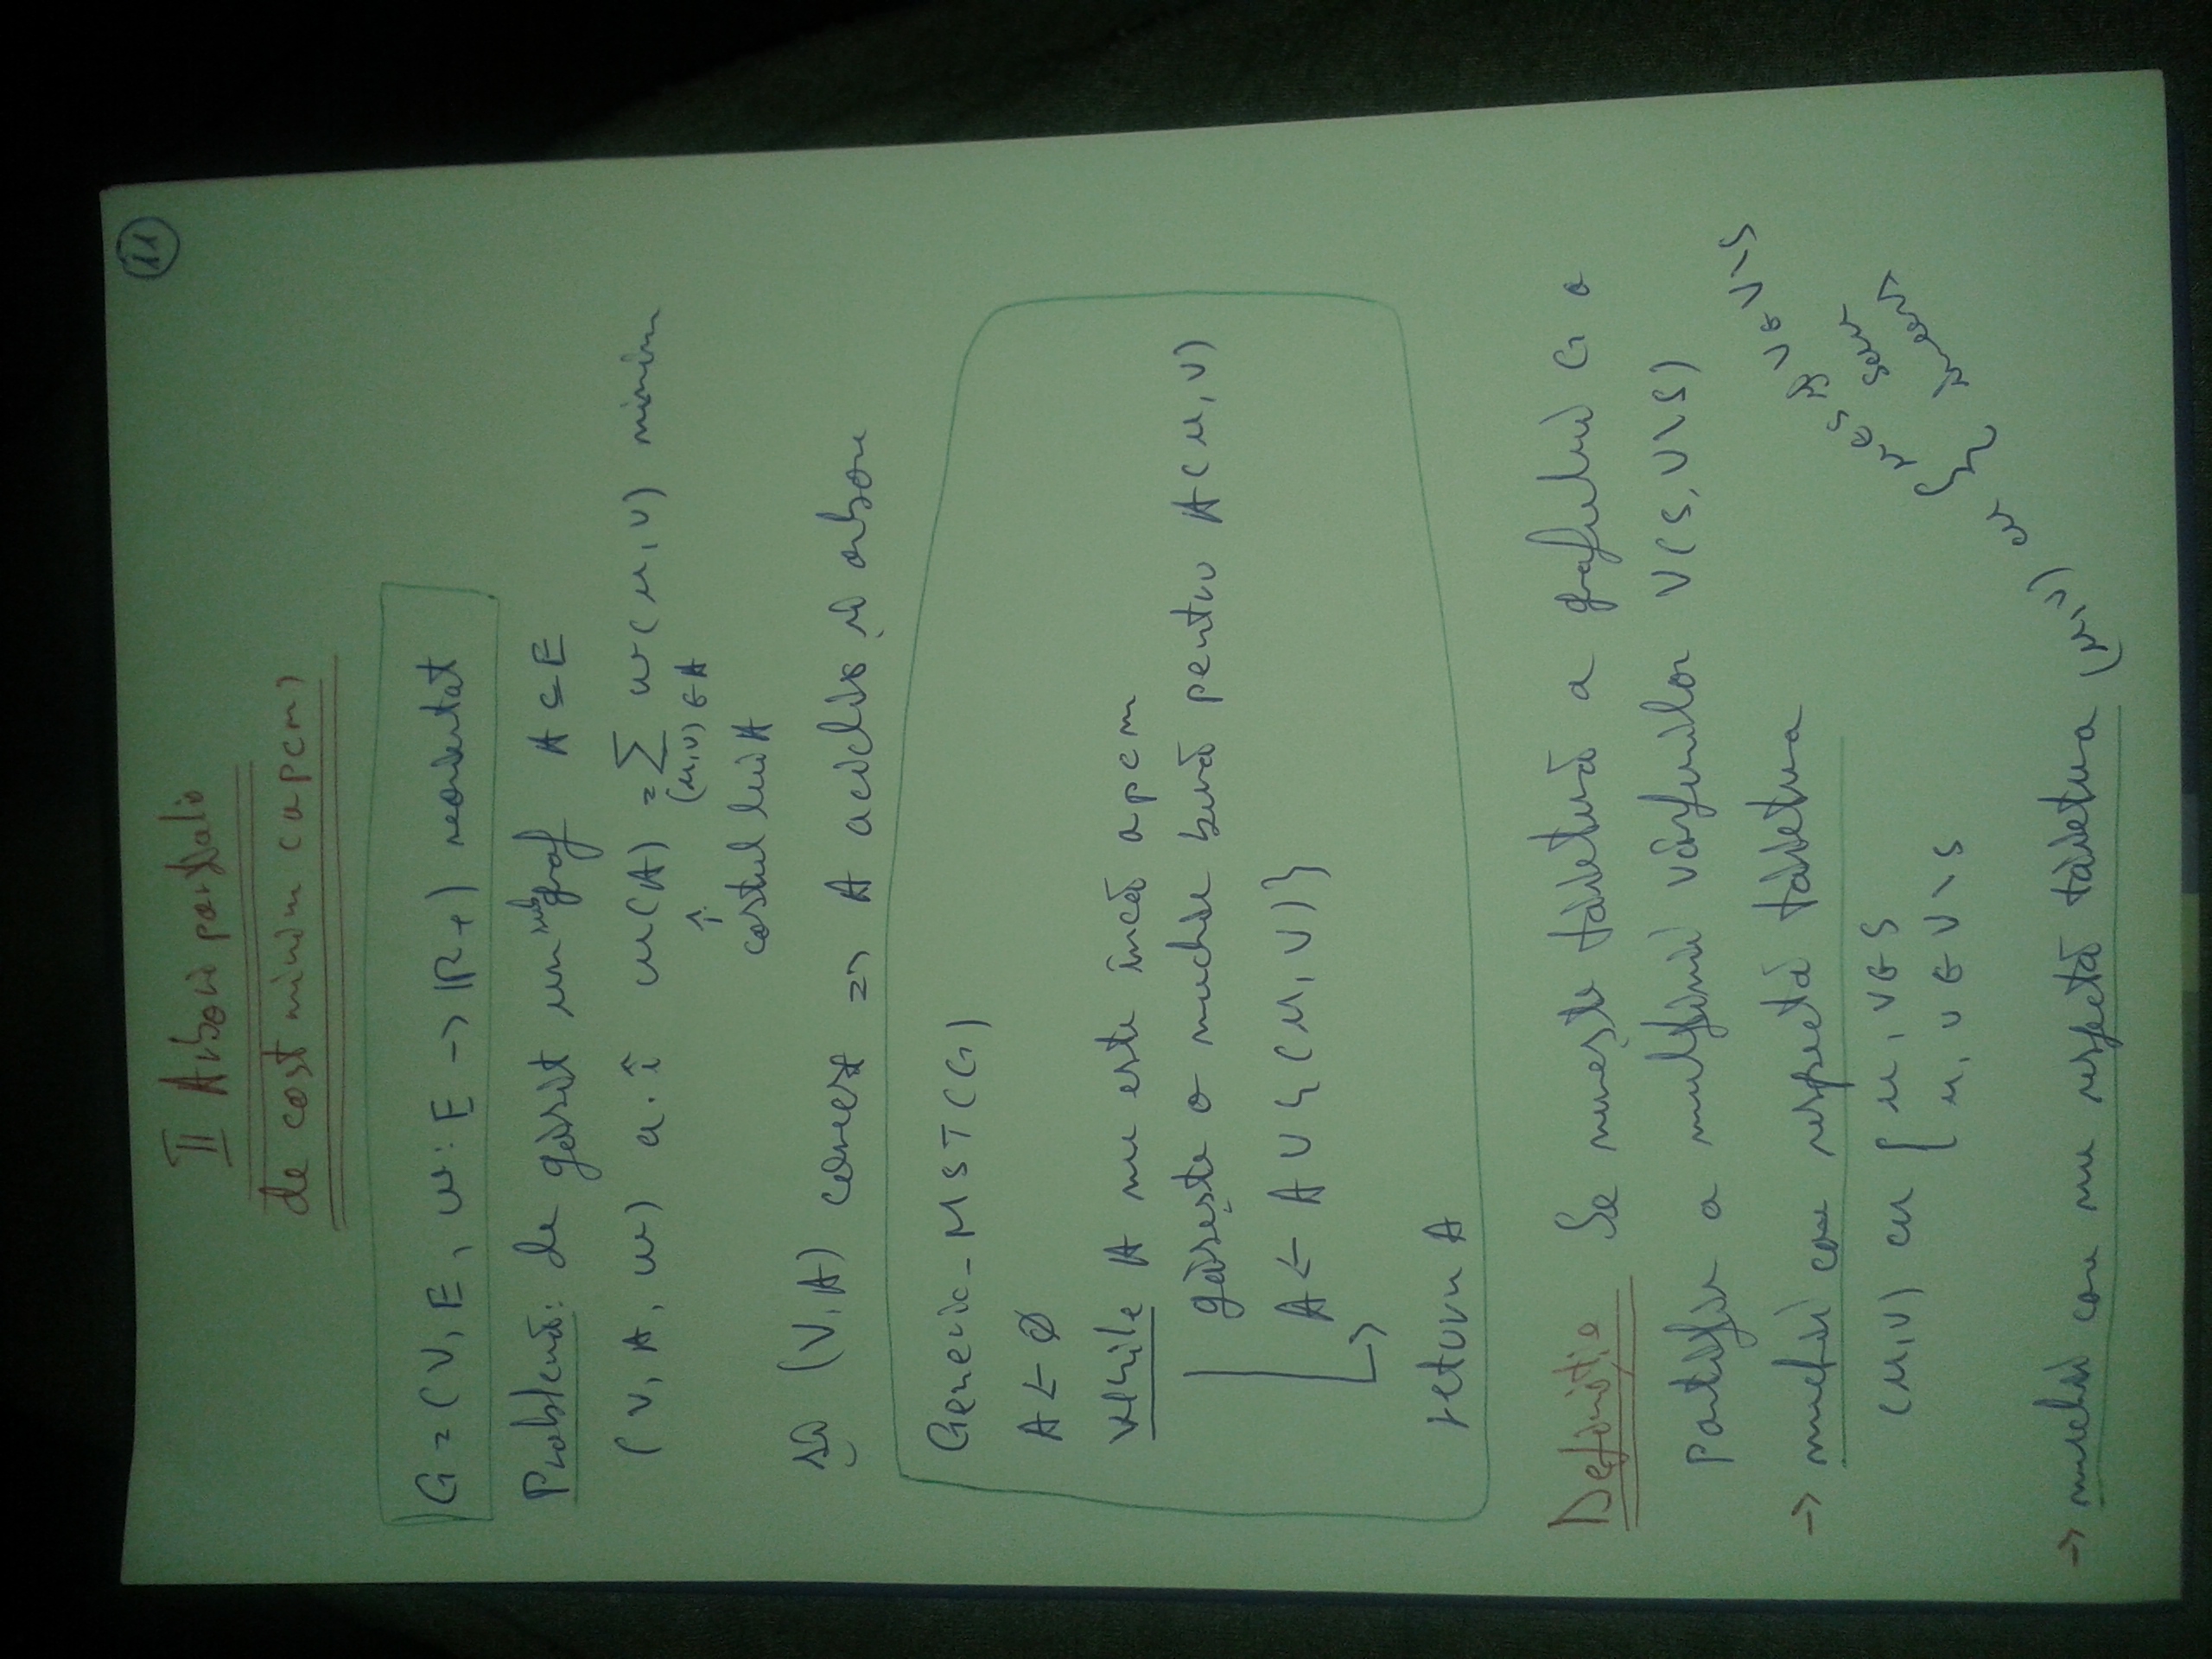 11
II Arbori parțiali
de cost minim (apcm)
G = (V, E, w: E → R+) neorientat
Problemă: de găsit un graf A ⊆ E
(V, A, w) a.î. w(A) = Σ w(u,v) minim
(u,v) ∈ A
↑
costul lui A
și (V, A) conex => A aciclic și arbore
Generic-MST(G)
A ← ∅
while A nu este încă apcm
găsește o muchie bună pentru A (u,v)
A ← A ∪ {(u,v)}
return A
Definiție Se numește tăietură a grafului G o
Partiție a mulțimii vârfurilor V(S, V\S)
→ muchii care respectă tăietura
(u,v) cu { u, v ∈ S
u, v ∈ V\S
→ muchii care nu respectă tăietura (u,v) cu { u ∈ S și v ∈ V\S
sau